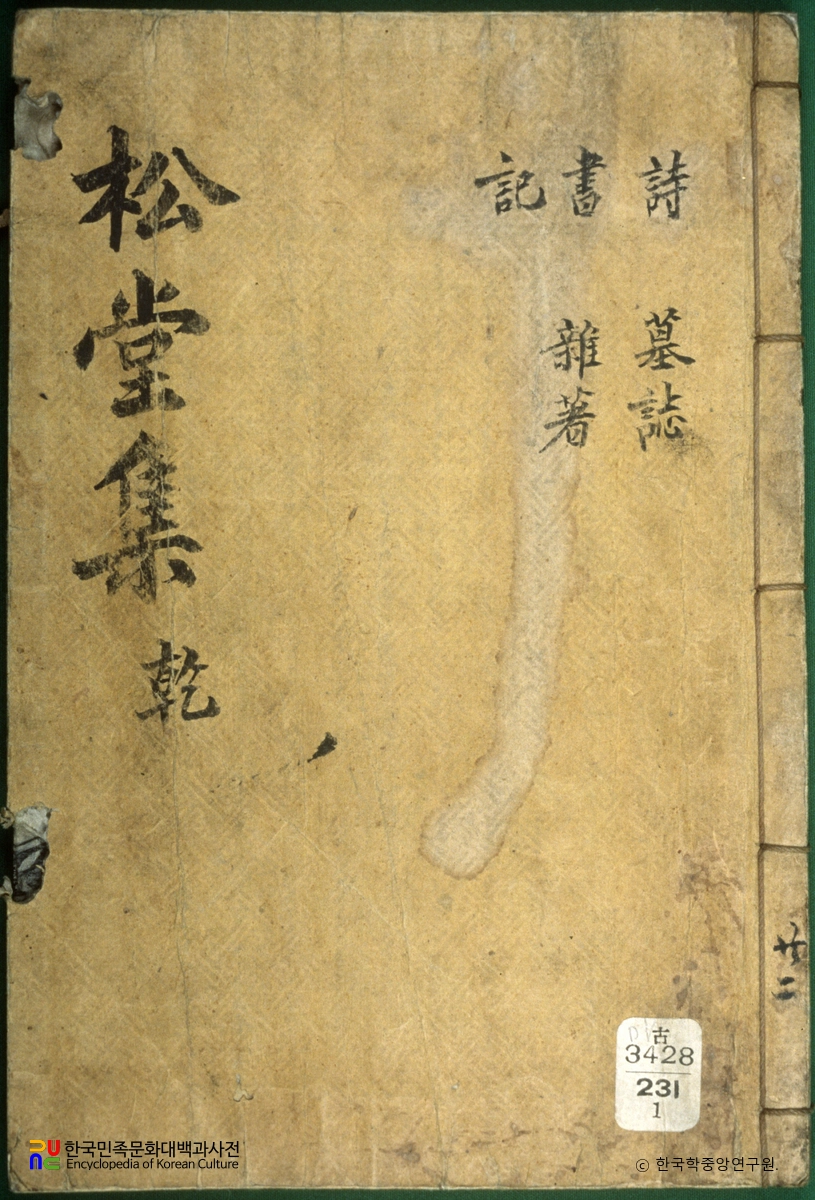 詩 墓誌
書 雜著
記
松堂集 乾
共二
古
3428
231
1
한국민족문화대백과사전
Encyclopedia of Korean Culture
© 한국학중앙연구원.